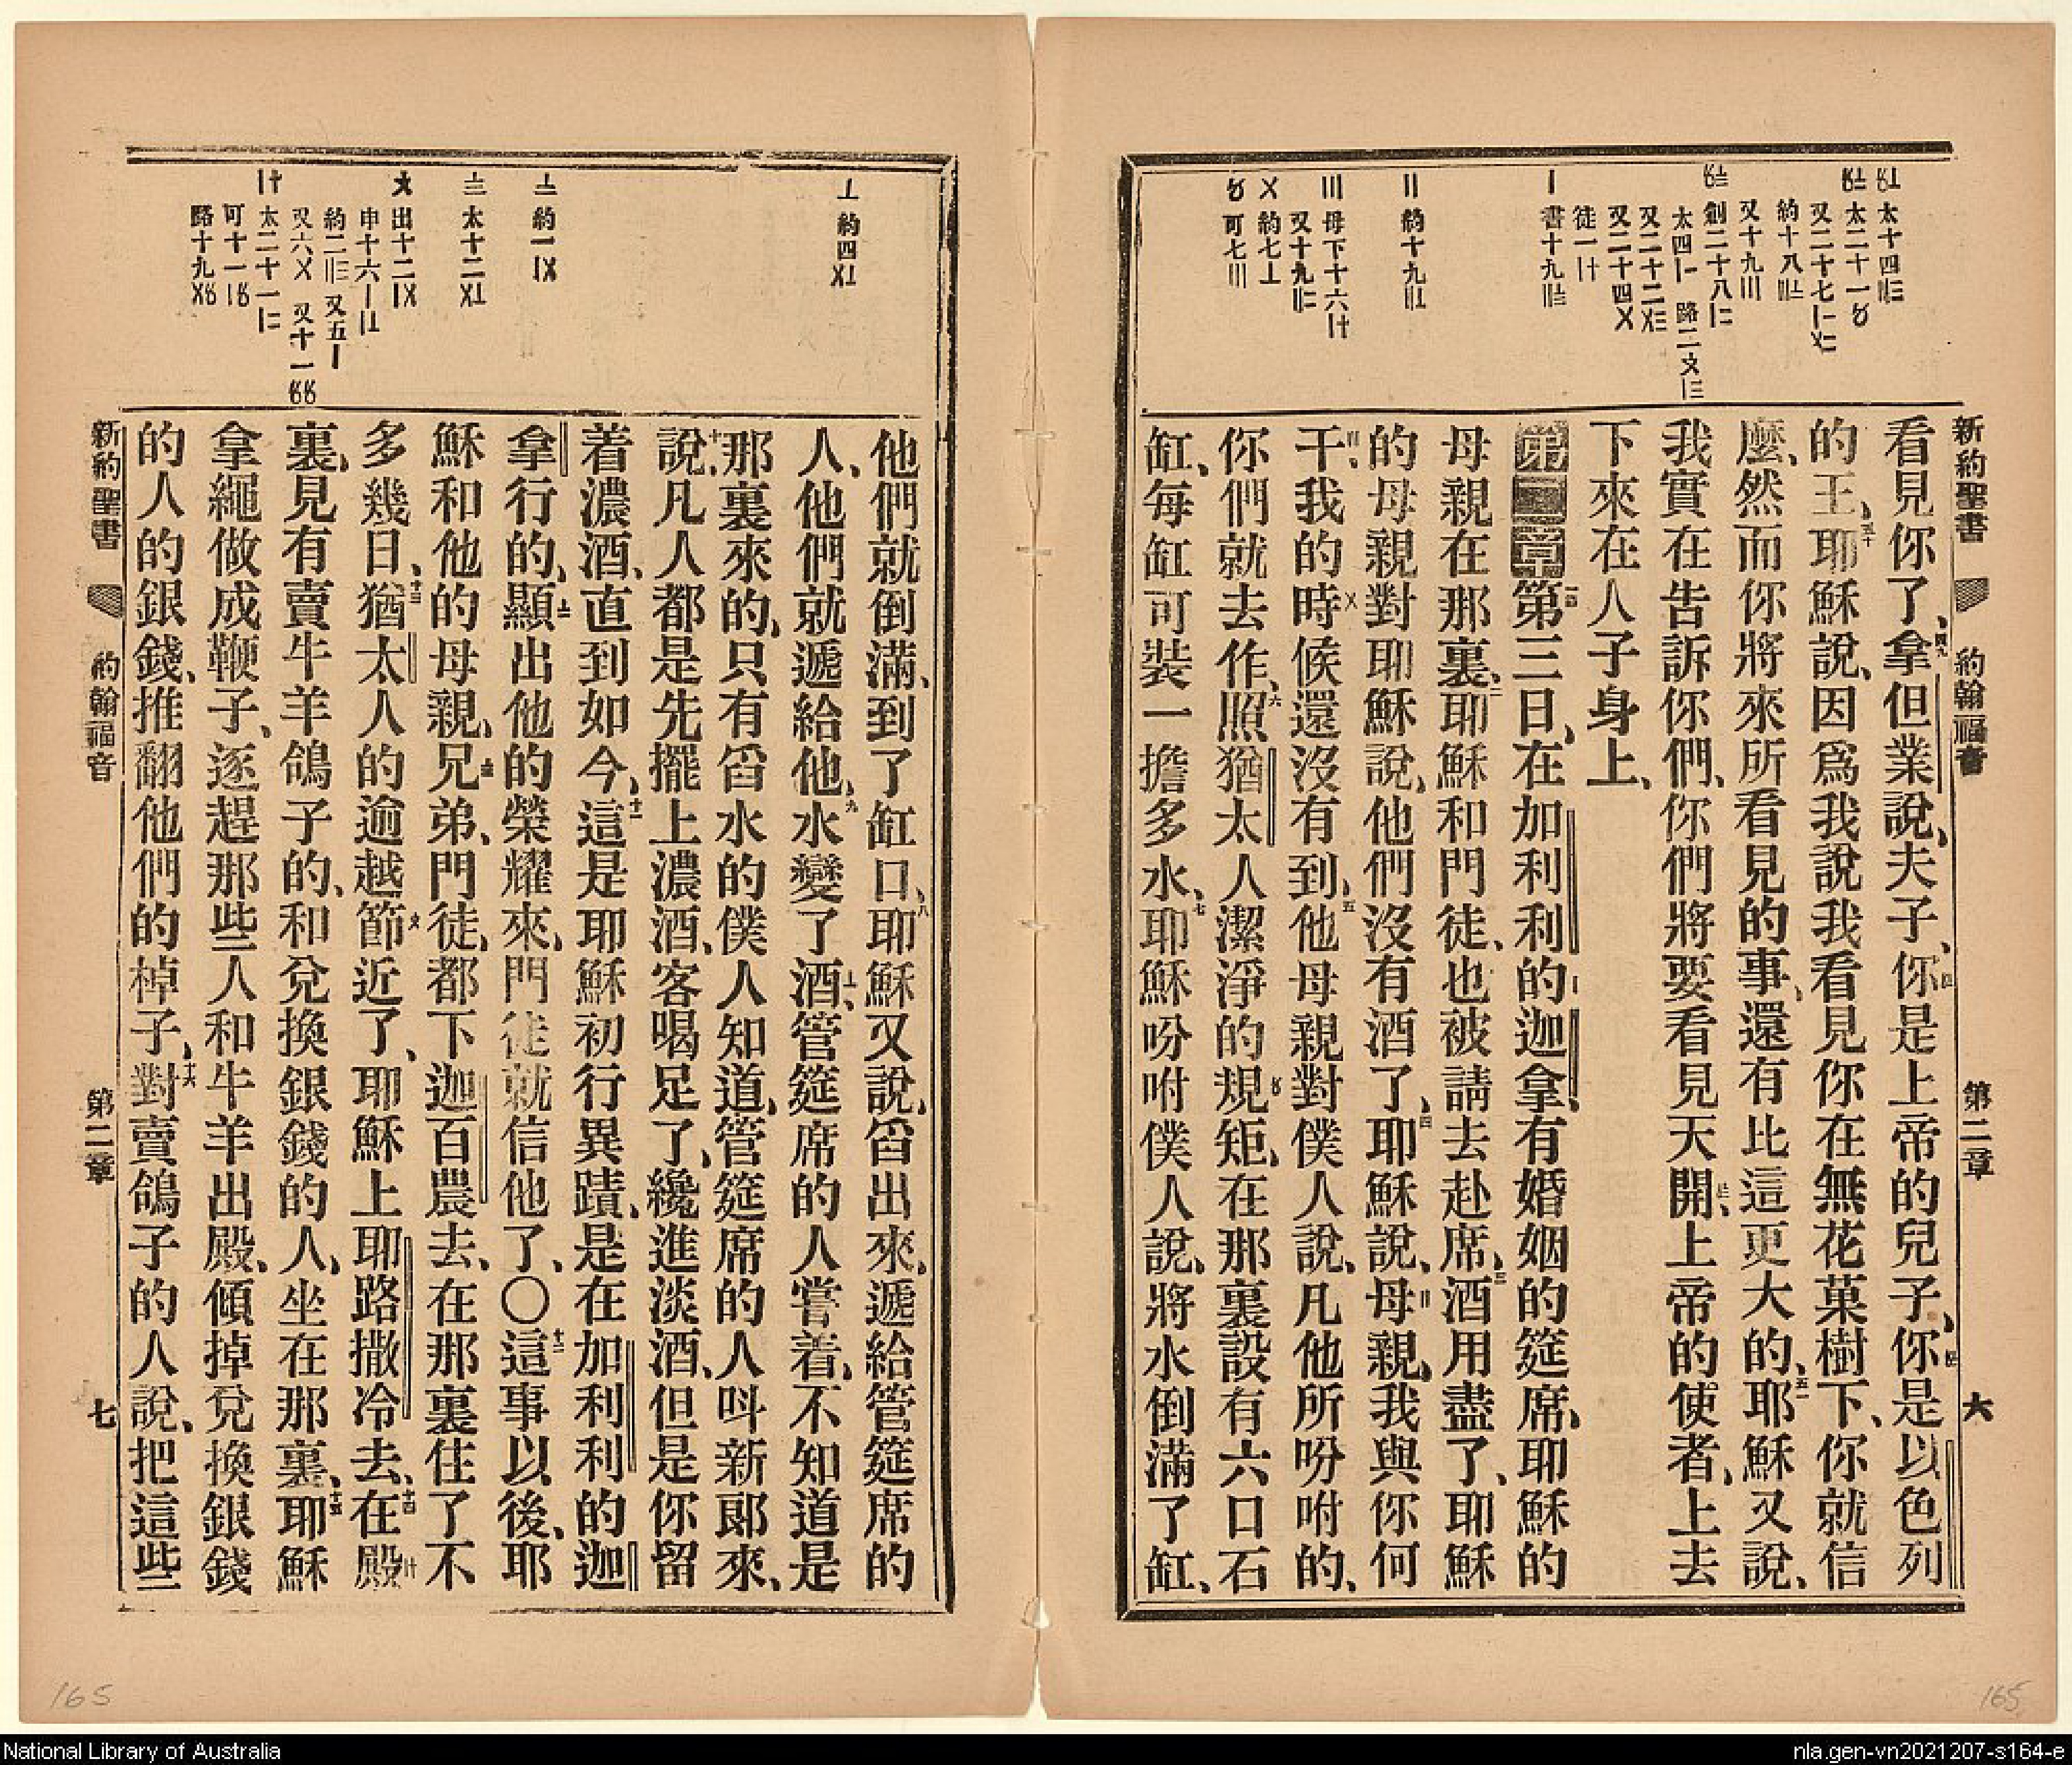 新約聖書 約翰福音 第二章 六
太十四
太二十一
又二十七
約十八
又十九〣
創二十八
太四〡 路二
又二十二
又二十四〤
徒一
書十九
〢 約十九
〣 母下十六
又十九
〤 約七〦
可七〣
看見你了、拿但業說、夫子、你是上帝的兒子、你是以色列
的王、耶穌說、因爲我說我看見你在無花菓樹下、你就信
麼、然而你將來所看見的事、還有比這更大的、耶穌又說、
我實在告訴你們、你們將要看見天開、上帝的使者、上去
下來在人子身上、
第二章第三日、在加利利的迦拿、有婚姻的筵席、耶穌的
母親在那裏、耶穌和門徒、也被請去赴席、酒用盡了、耶穌
的母親對耶穌說、他們沒有酒了、耶穌說、母親、我與你何
干、我的時候還沒有到、他母親對僕人說、凡他所吩咐的、
你們就去作、照猶太人潔淨的規矩、在那裏設有六口石
缸、每缸可裝一擔多水、耶穌吩咐僕人說、將水倒滿了缸、
〦 約四
約一
太十二
出十二
申十六
約二 又五〡
又六〤 又十一
太二十一
可十一
路十九
他們就倒滿、到了缸口、耶穌又說、舀出來、遞給管筵席的
人、他們就遞給他、水變了酒、管筵席的人嘗着、不知道是
那裏來的、只有舀水的僕人知道、管筵席的人呌新郎來、
說、凡人都是先擺上濃酒、客喝足了、纔進淡酒、但是你留
着濃酒、直到如今、這是耶穌初行異蹟、是在加利利的迦
拿行的、顯出他的榮耀來、門徒就信他了、〇這事以後、耶
穌和他的母親、兄弟、門徒、都下迦百農去、在那裏住了不
多幾日、猶太人的逾越節近了、耶穌上耶路撒冷去、在殿
裏、見有賣牛羊鴿子的、和兌換銀錢的人、坐在那裏、耶穌
拿繩做成鞭子、逐趕那些人和牛羊出殿、傾掉兌換銀錢
的人的銀錢、推翻他們的棹子、對賣鴿子的人說、把這些
新約聖書 約翰福音 第二章 七
165
165
National Library of Australia
nla.gen-vn2021207-s164-e